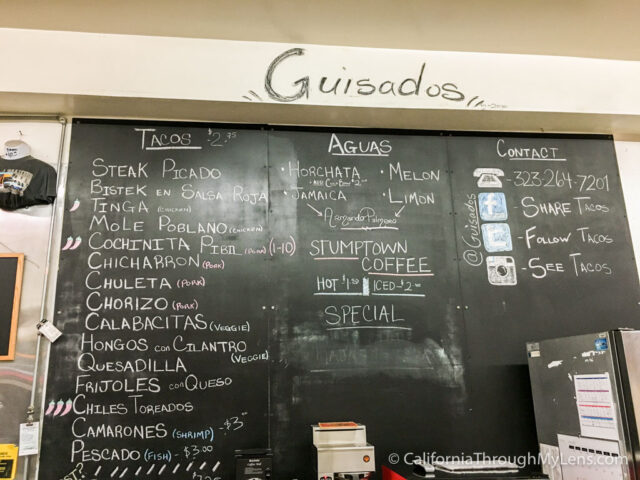 Guisados
Tacos $2.75
Steak Picado
Bistek en Salsa Roja
Tinga (chicken)
Mole Poblano (chicken)
Cochinita Pibil (pork) (1-10)
Chicharron (pork)
Chuleta (pork)
Chorizo (pork)
Calabacitas (veggie)
Hongos con Cilantro (veggie)
Quesadilla
Frijoles con Queso
Chiles Toreados
Camarones (shrimp) - $3
Pescado (fish) - $3.00
Aguas
· Horchata · Melon
· Jamaica · Limon
Armando Palmero
Stumptown
Coffee
Hot $1.50 Iced - $2.00
Special
Contact
- 323-264-7201
@Guisados
- Share Tacos
- Follow Tacos
- See Tacos
© CaliforniaThroughMyLens.com